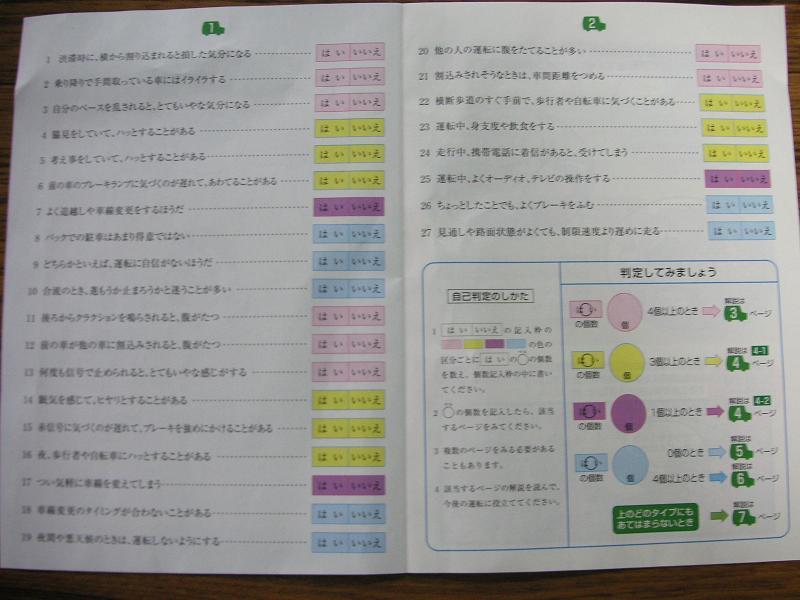 1
1 渋滞時に、横から割り込まれると損した気分になる はい いいえ
2 乗り降りで手間取っている車にはイライラする はい いいえ
3 自分のペースを乱されると、とてもいやな気分になる はい いいえ
4 脇見をしていて、ハッとすることがある はい いいえ
5 考え事をしていて、ハッとすることがある はい いいえ
6 前の車のブレーキランプに気づくのが遅れて、あわてることがある はい いいえ
7 よく追越しや車線変更をするほうだ はい いいえ
8 バックでの駐車はあまり得意ではない はい いいえ
9 どちらかといえば、運転に自信がないほうだ はい いいえ
10 合流のとき、進もうか止まろうかと迷うことが多い はい いいえ
11 後ろからクラクションを鳴らされると、腹がたつ はい いいえ
12 前の車が他の車に割込みされると、腹がたつ はい いいえ
13 何度も信号で止められると、とてもいやな感じがする はい いいえ
14 眠気を感じて、ヒヤリとすることがある はい いいえ
15 赤信号に気づくのが遅れて、ブレーキを強めにかけることがある はい いいえ
16 夜、歩行者や自転車にハッとすることがある はい いいえ
17 つい気軽に車線を変えてしまう はい いいえ
18 車線変更のタイミングが合わないことがある はい いいえ
19 夜間や悪天候のときは、運転しないようにする はい いいえ
2
20 他の人の運転に腹をたてることが多い はい いいえ
21 割込みされそうなときは、車間距離をつめる はい いいえ
22 横断歩道のすぐ手前で、歩行者や自転車に気づくことがある はい いいえ
23 運転中、身支度や飲食をする はい いいえ
24 走行中、携帯電話に着信があると、受けてしまう はい いいえ
25 運転中、よくオーディオ、テレビの操作をする はい いいえ
26 ちょっとしたことでも、よくブレーキをふむ はい いいえ
27 見通しや路面状態がよくても、制限速度より遅めに走る はい いいえ
自己判定のしかた
1 はい いいえ の記入枠の
の色の
区分ごとに はい の○の個数
を数え、個数記入枠の中に書い
てください。
2 ○の個数を記入したら、該当
するページをみてください。
3 複数のページをみる必要があ
ることもあります。
4 該当するページの解説を読んで、
今後の運転に役立ててください。
判定してみましょう
はい の個数 個 4個以上のとき 解説は 3 ページ
はい の個数 個 3個以上のとき 解説は 4-1 4 ページ
はい の個数 個 1個以上のとき 解説は 4-2 4 ページ
はい の個数 個 0個のとき 解説は 5 ページ
4個以上のとき 解説は 6 ページ
上のどのタイプにも
あてはまらないとき 解説は 7 ページ